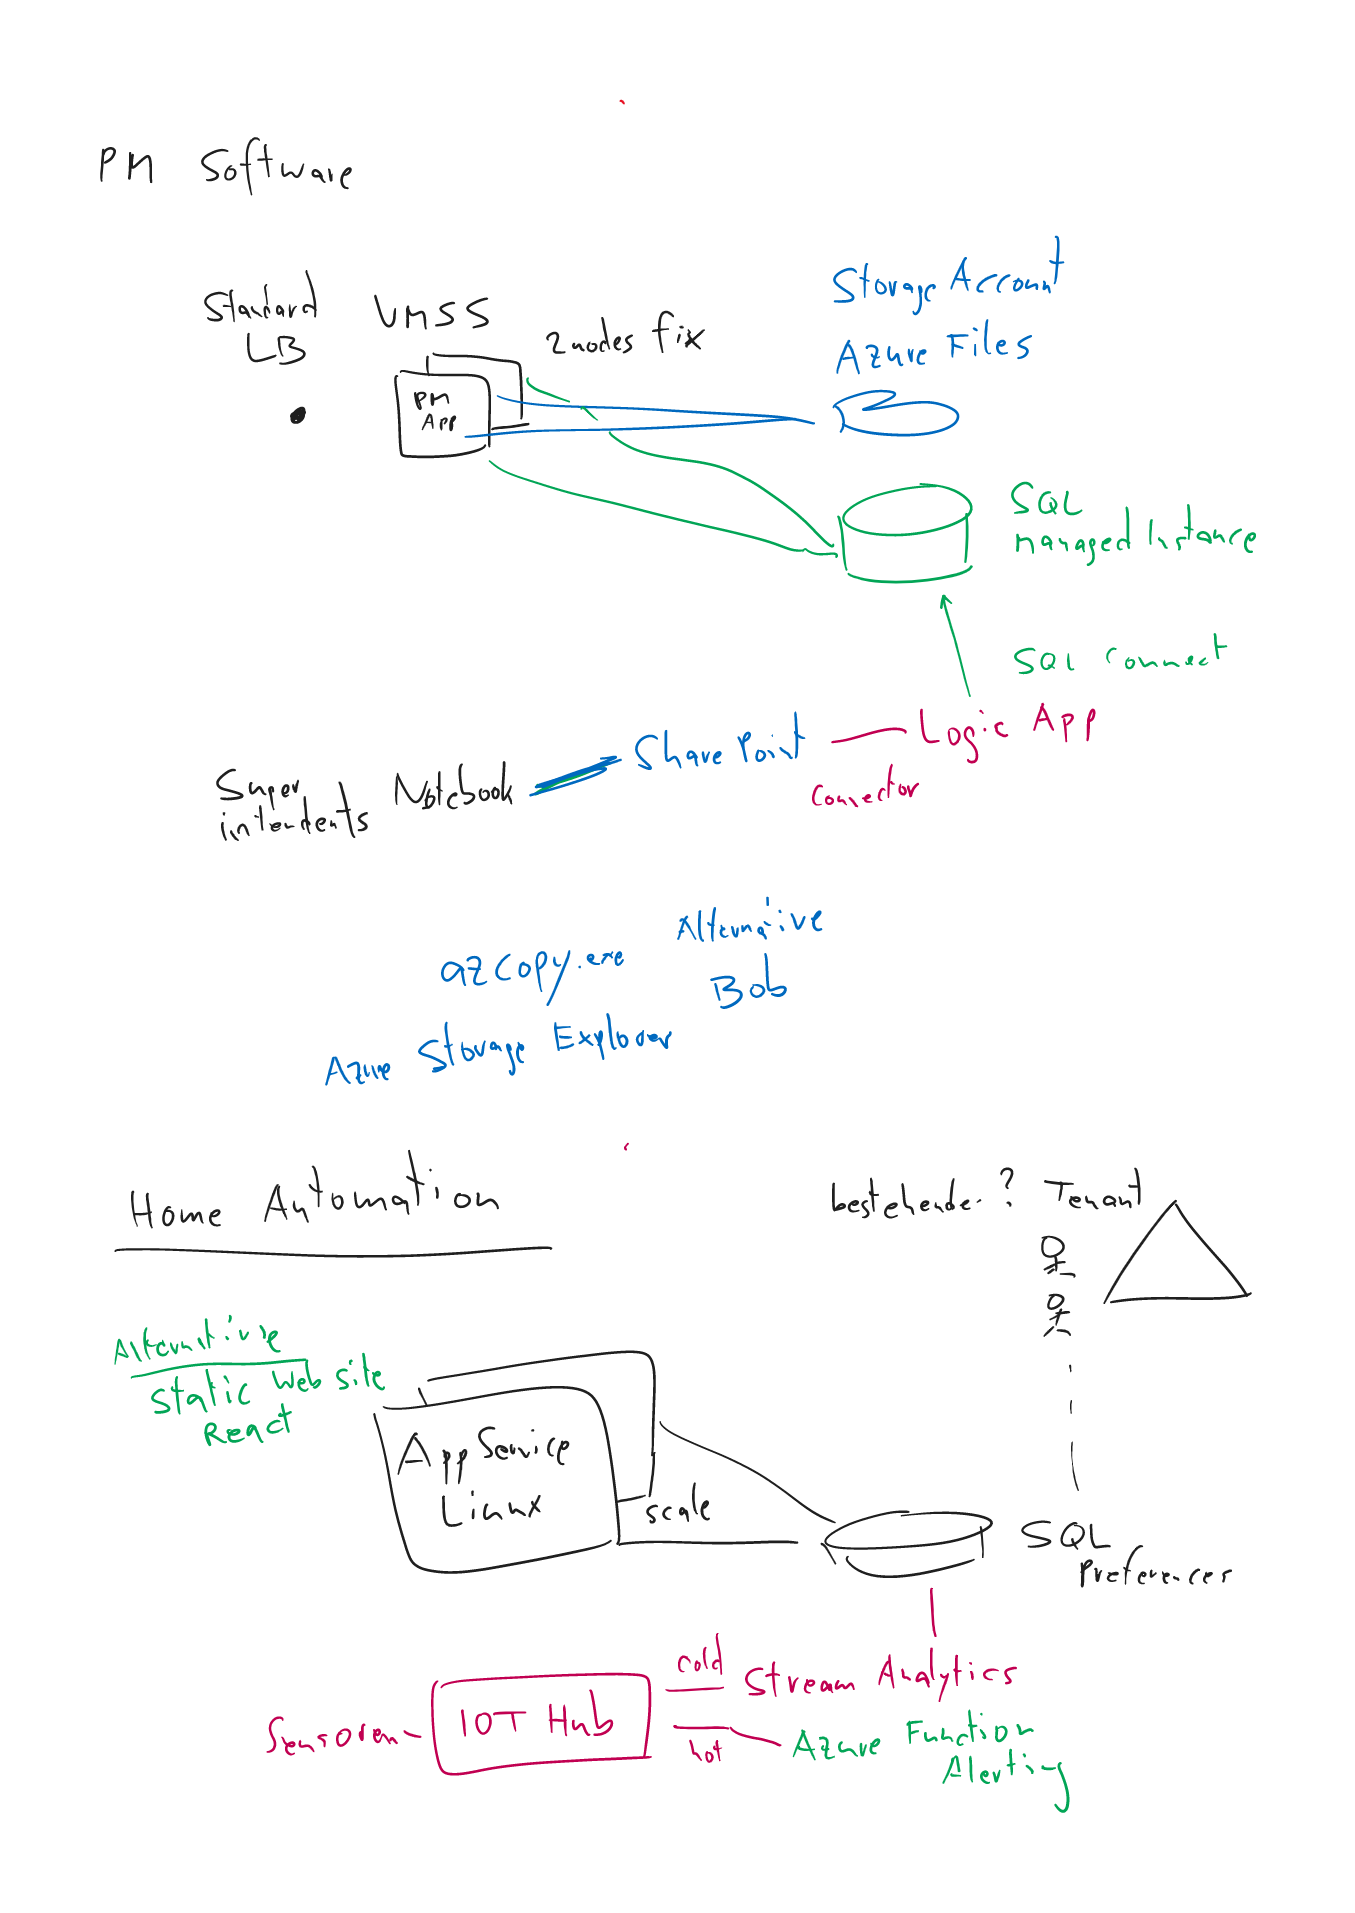 PM Software
Standard
LB
VMSS
2nodes fix
PM
App
Storage Account
Azure Files
SQL
managed Instance
SQL Connect
Logic App
Share Point
Connector
Super
intendents
Notebook
Alternative
azcopy.exe
Bob
Azure Storage Explorer
Home Automation
bestehender ? Tenant
Alternative
Static Web site
React
App Service
Linux
scale
SQL
Preferences
cold
Stream Analytics
Sensoren
IOT Hub
hot
Azure Function
Alerting